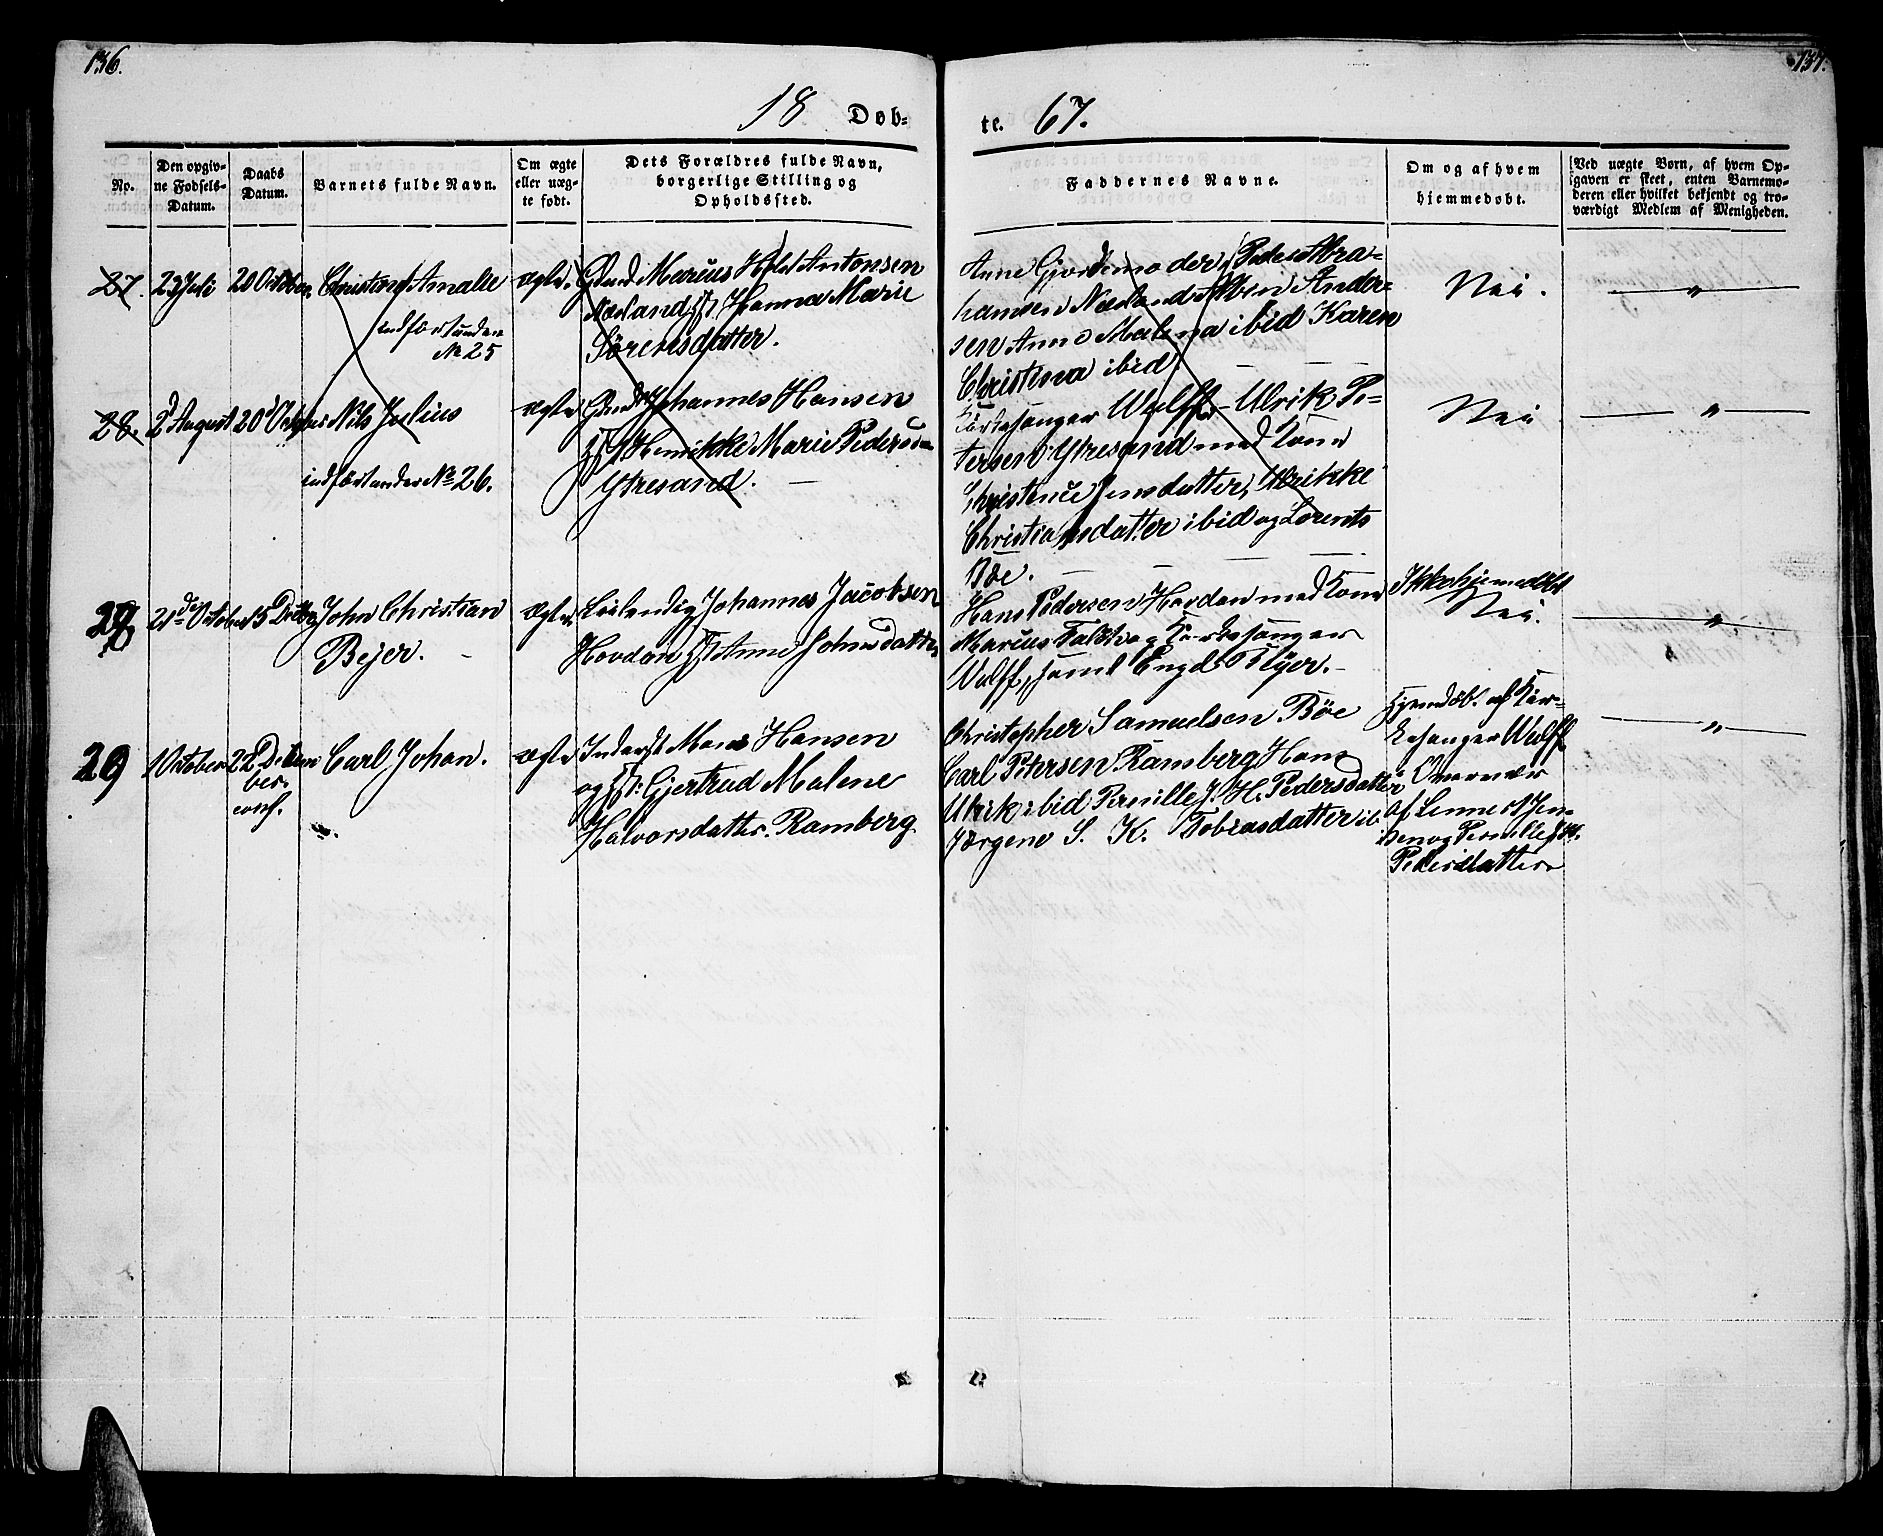 136.
137.
18 Døb-
te. 67.
No.
Den opgiv-
ne Fødsels-
Datum.
Daabs
Datum.
Barnets fulde Navn.
Om ægte
eller uæg-
te født.
Dets Forældres fulde Navn,
borgerlige Stilling og
Opholdssted.
Faddernes Navne.
Om og af hvem
hjemmedøbt.
Ved uægte Børn, af hvem Op-
gaven er skeet, enten Barnemo-
deren eller hvilket bekjendt og tro-
værdigt Medlem af Menigheden.
27. 23 Juli 20 October Amalie
indført under
No 25
ægte Marius Antonsen
Næsland Hanna Marie
Sørensdatter.
Anne Gjordemoder, Peder Abra-
hamsen Næsland Ander-
sen Anne Malena ibid Karen
Christina ibid
Nei. "
28. 2 August 20 Nils Julius
indført under No 26.
ægte Johannes Hansen
Henrikke Marie
Ytresand.
Kirkesanger Wulff - Ulrik Pe-
tersen Ytresand med Kone
Jensdatter, Ulrikke
Christiansdatter ibid og Lorents
Bøe.
Nei "
28 October John Christian
Bejer.
ægte Johannes Jacobsen
Hovdan Anne Johnsdatter
Hans Pedersen Hovdan med Kone
Marius Falk og Kirkesanger
Wulff, samt
Ikke hjemmedøbt
Nei. "
29 1 October 22 Decem
ber
conf.
Carl Johan.
ægte Inderst Mons Hansen
og Gjertrud Malene
Halvorsdatter. Ramberg
Christopher Samuelsen Bøe
Carl Petersen Ramberg Hans
Ulrik ibid Pernille J. H. Pedersdatter
Jørgene S. K. Tobiasdatter ib
Hjemdøb. af Kir-
kesanger Wulff
Overvær
af Jen-
sen og Pernille
Pedersdatter
"